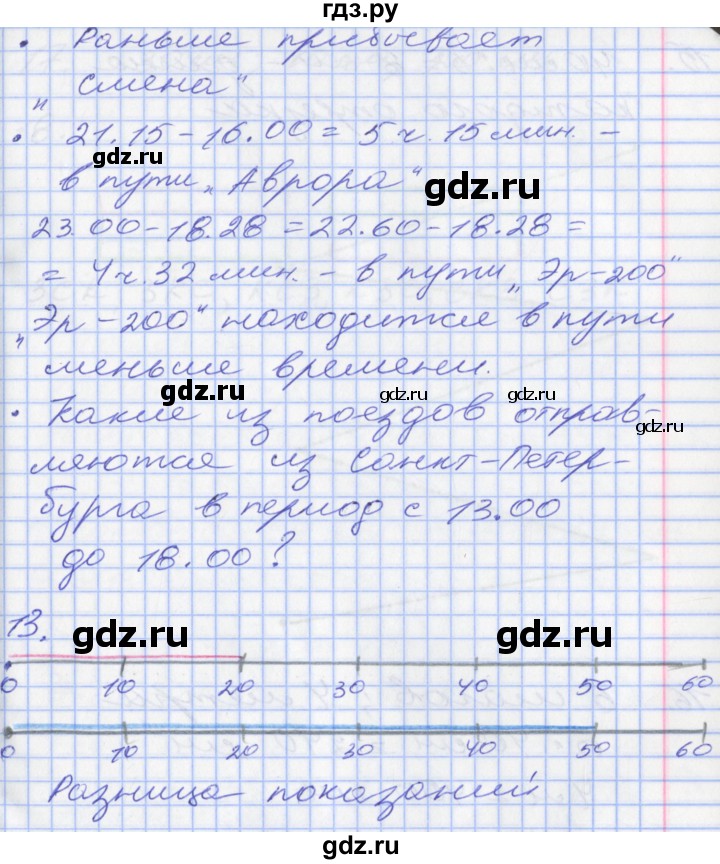 гдз.ру
• Раньше прибывает
„Смена“
• 21.15 – 16.00 = 5 ч. 15 мин. –
gdz.ru
в пути „Аврора“
gdz.ru
23.00 – 18.28 = 22.60 – 18.28 =
= 4 ч. 32 мин. – в пути „Эр-200“
„Эр-200“ находится в пути
меньше времени.
gdz.ru gdz.ru gdz.ru
• Какие из поездов отправ-
gdz.ru
ляются из Санкт-Петер-
бурга в период с 13.00
до 18.00?
13.
gdz.ru gdz.ru
0 10 20 30 40 50 60
0 10 20 30 40 50 60
Разница показаний
gdz.ru gdz.ru